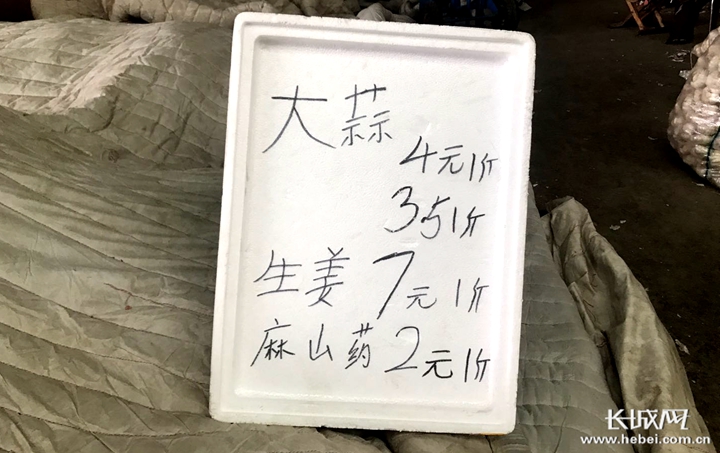 大蒜
4元1斤
3.51斤
生姜7元1斤
麻山药2元1斤
长城网
www.hebei.com.cn